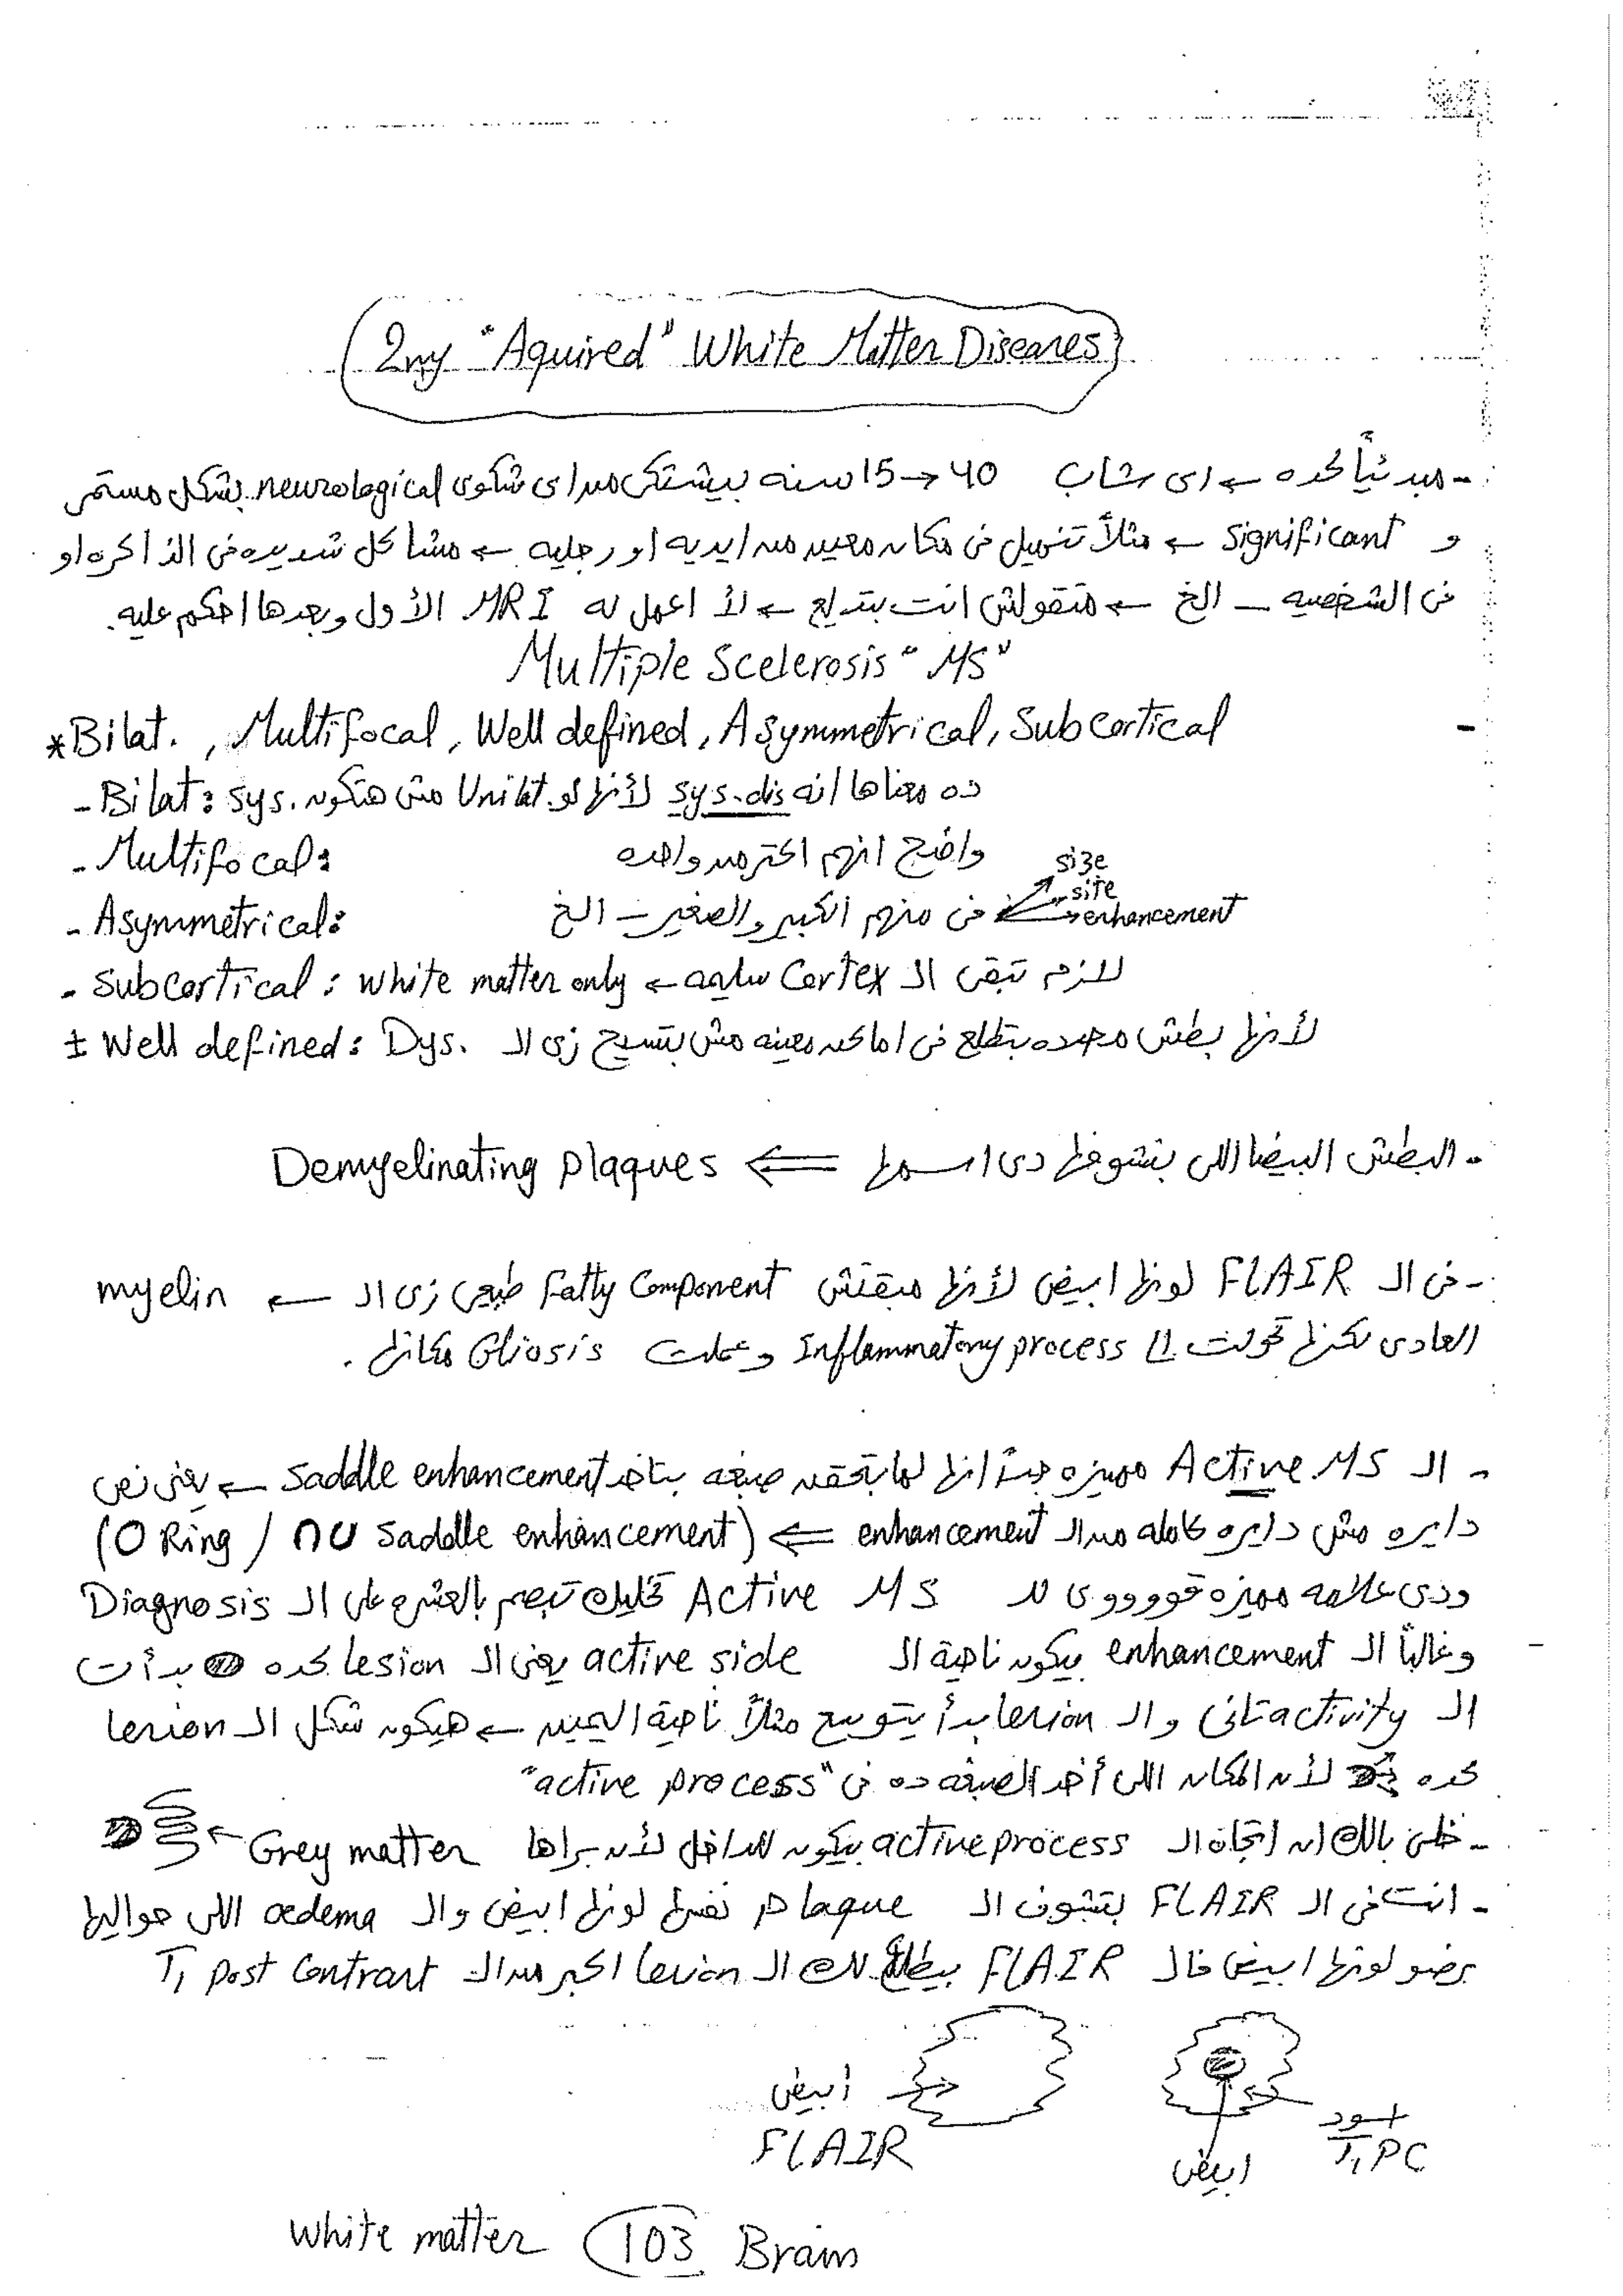 2ry "Aquired" White Matter Diseases
- مبدئياً كده ← اى شاب 15 → 40 سنه بيشتكى من اى شكوى neurological بشكل مستمر
و significant ← مثلاً تنميل فى مكان معين من ايديه او رجليه ← مشاكل شديده فى الذاكره او
فى الشخصيه _ الخ ← متقولش انت بتدلع ← لأ اعمل له MRI الأول وبعدها احكم عليه.
Multiple Scelerosis "MS"
* Bilat. , Multifocal, Well defined, Asymmetrical, Subcortical -
- Bilat: sys. ده معناها انه sys. dis لأنها لو Unilat. مش هتكون
- Multifocal: واضح انهم اكتر من واحده
- Asymmetrical: فى منهم الكبير والصغير _ الخ size
site
enhancement
- Subcortical: white matter only ← سليمه Cortex لازم تبقى ال
± Well defined: Dys. لأنها بطش محدده بتطلع فى اماكن معينه مش بتسيح زى ال
- البطش البيضا اللى بنشوفها دى اسمها ⇐ Demyelinating plaques
- فى ال FLAIR لونها ابيض لأنها مبقتش Fatty Component طبعى زى ال ← myelin
العادى لكنها تحولت لـ Inflammatory process وعملت Gliosis مكانها .
- ال Active MS مميزه جداً انها لما بتحقن صبغه بتاخد Saddle enhancement ← يعنى نص
دايره مش دايره كامله من ال enhancement ⇐ (O Ring / ∩∪ Saddle enhancement)
ودى علامه مميزه قووووى لـ Active MS تخليك تبصم بالعشره على ال Diagnosis
وغالباً ال enhancement بيكون ناحية ال active side يعنى ال lesion كده بدأت -
ال activity تانى و ال lesion بدأ يتوسع مثلاً ناحية اليمين ← هيكون شكل ال lesion
كده لأن المكان اللى أخد الصبغه ده فى "active process"
- خلى بالك ان اتجاه ال active process بيكون للداخل لأن براها Grey matter ←
- انت فى ال FLAIR بتشوف ال plaque نفسها لونها ابيض و ال oedema اللى حواليها
برضو لونها ابيض فال FLAIR بيطلع لك ال lesion اكبر من ال T1 post Contrast
ابيض
FLAIR
ابيض
اسود
T1 PC
White matter 103 Brain